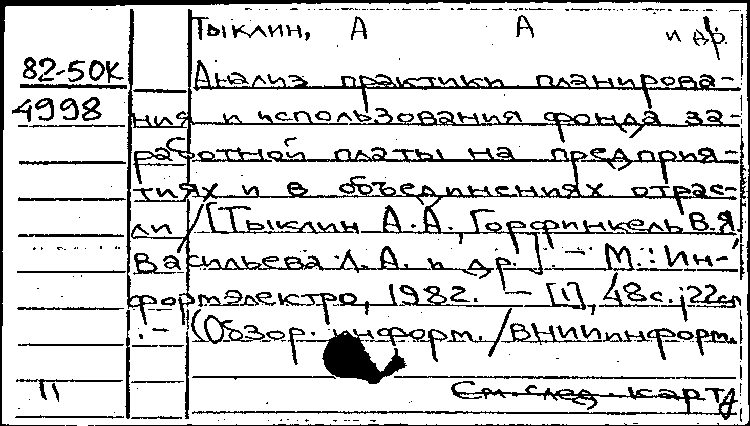 Тыклин, А А и др.
82-50К
Анализ практики планирова-
4998
ния и использования фонда за-
работной платы на предприя-
тиях и в объединениях отрас-
ли / [Тыклин А.А., Горфинкель В.Я.,
Васильева Л.А. и др.]. - М.: Ин-
формэлектро, 1982. - [1], 48 с.; 22 см
. - (Обзор. информ. / ВНИИинформ.
11
См. след. карту